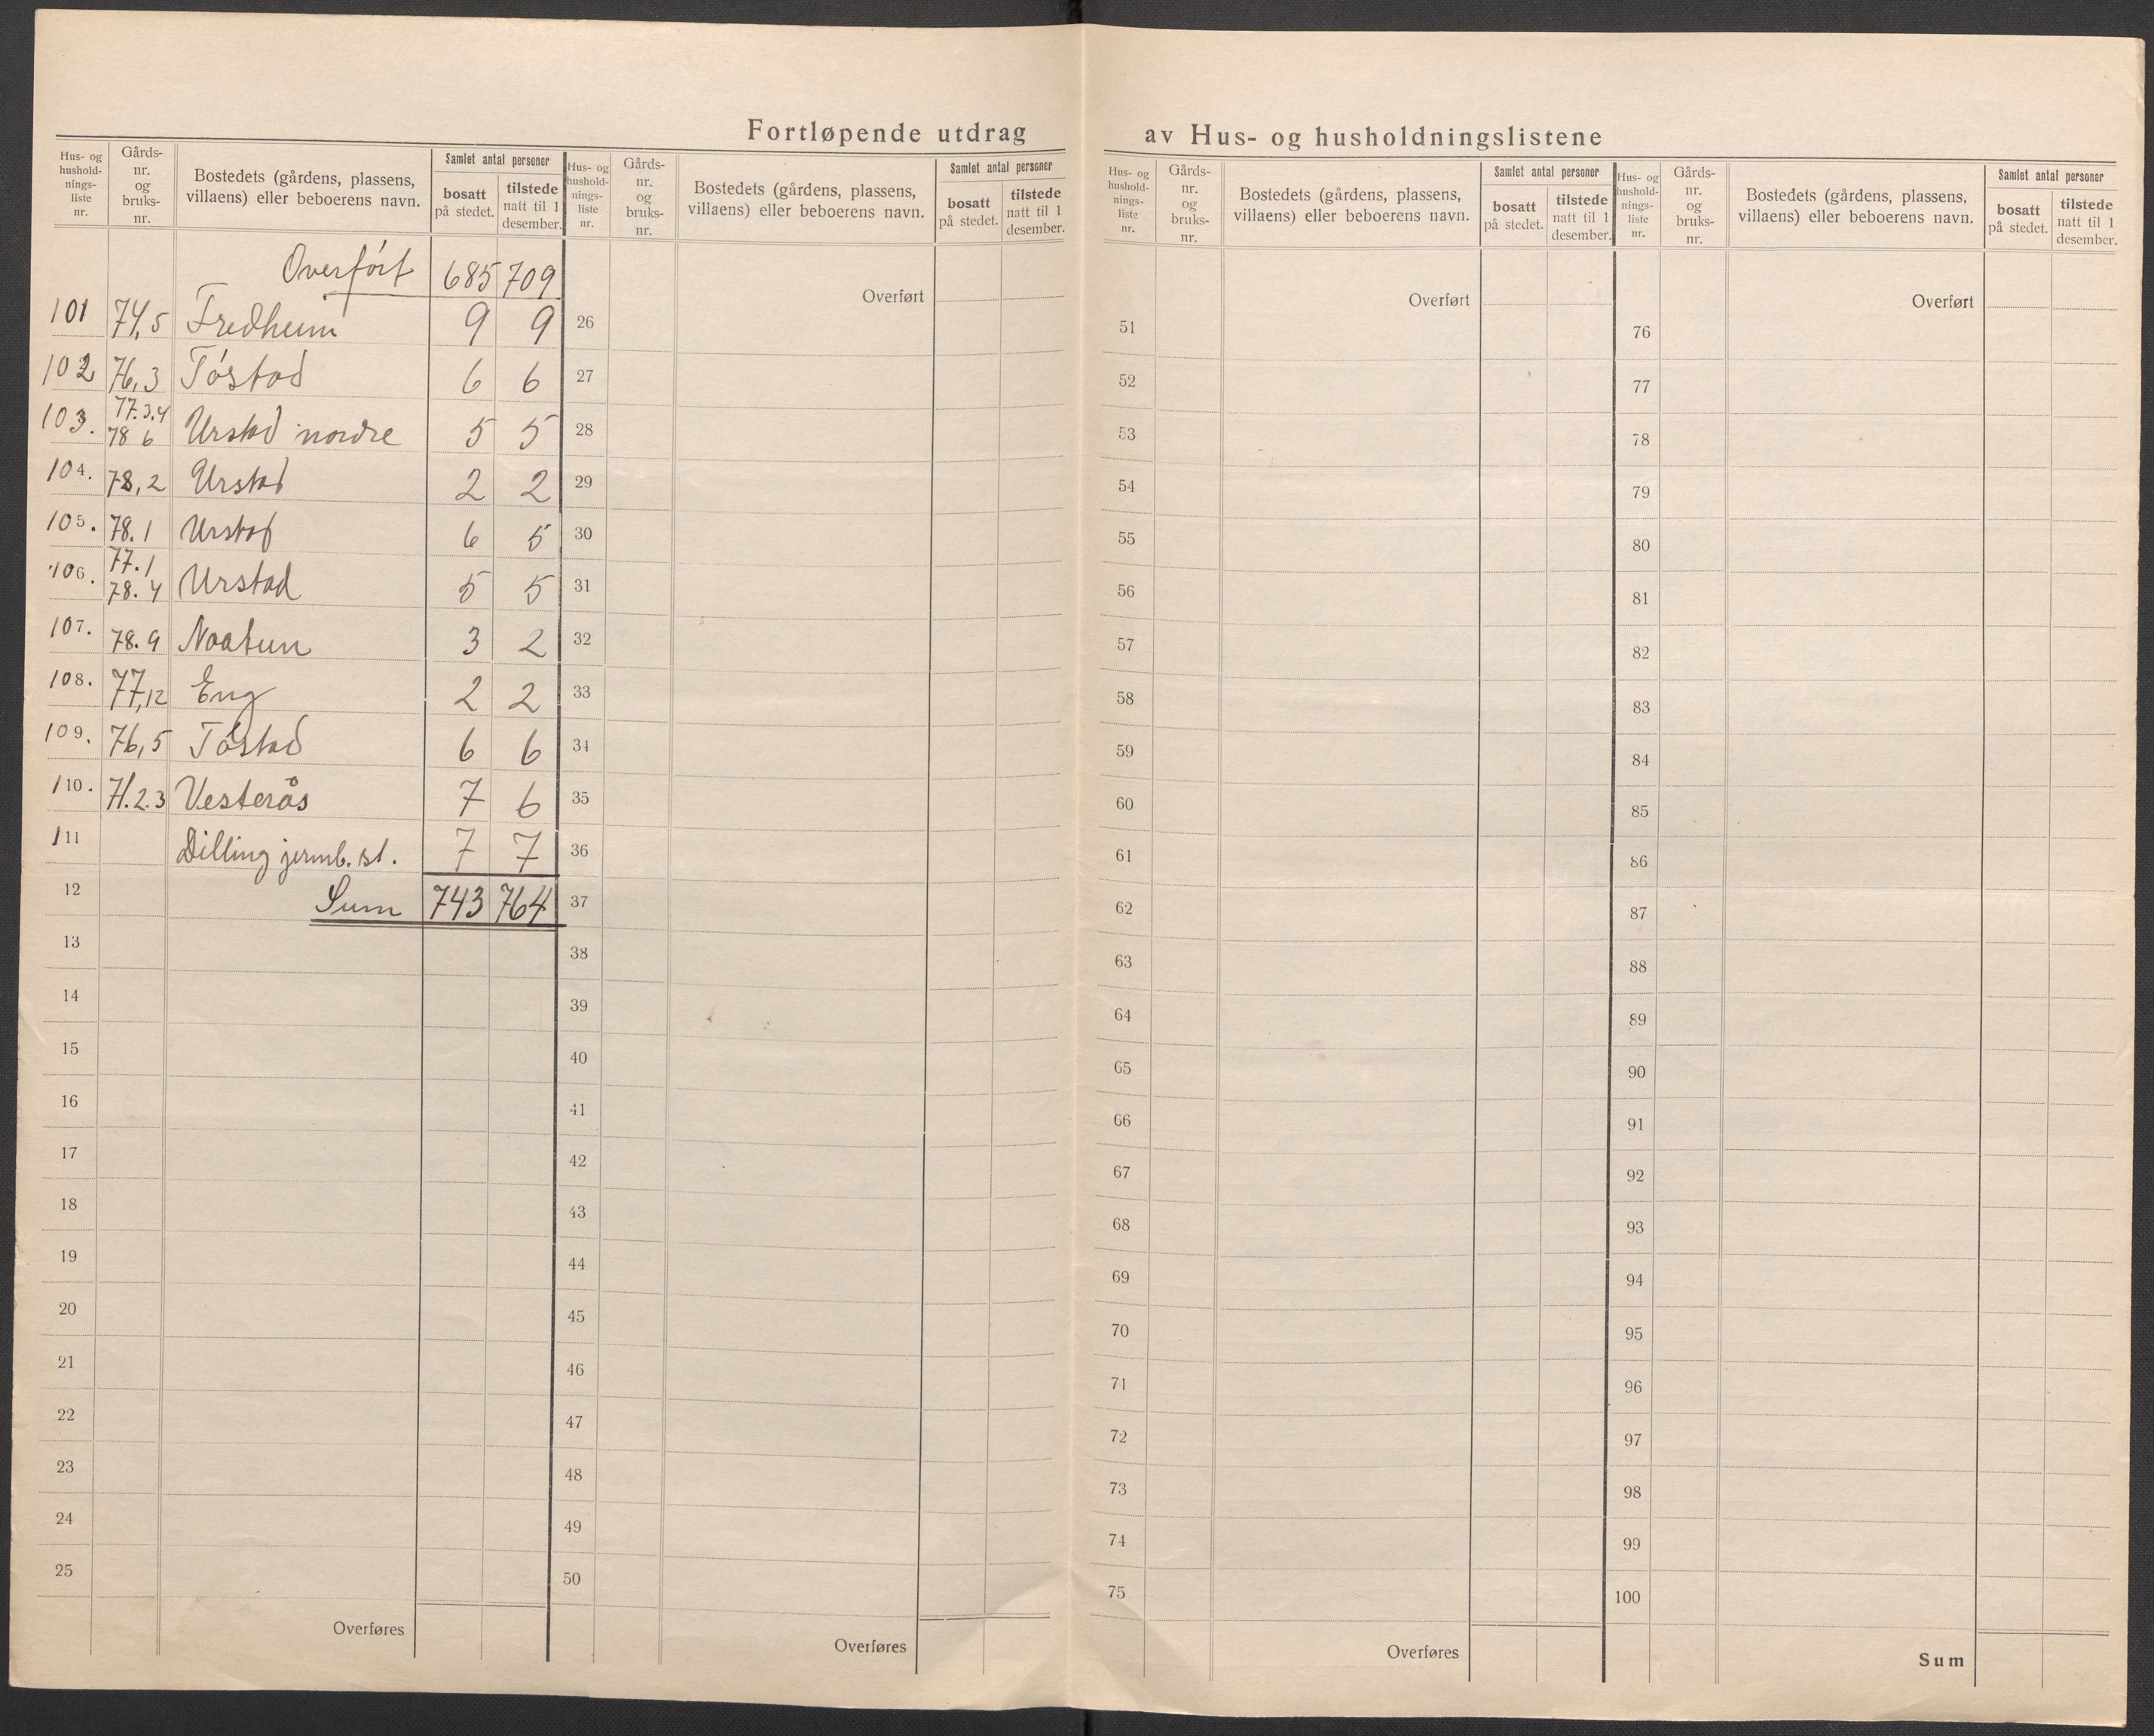 Fortløpende utdrag av Hus- og husholdningslistene
Hus- og hushold-nings-liste nr. | Gårds-nr. og bruks-nr. | Bostedets (gårdens, plassens, villaens) eller beboerens navn. | Samlet antal personer | bosatt på stedet. | tilstede natt til 1 desember.
Overført 685 709
101 74,5 Fredheim 9 9
102 76,3 Tøstad 6 6
103. 77.3.4 78 6 Urstad nordre 5 5
104. 78,2 Urstad 2 2
105. 78.1 Urstad 6 5
106. 77.1 78.4 Urstad 5 5
107. 78.9 Noatun 3 2
108. 77,12 Eng 2 2
109. 76,5 Tøstad 6 6
110. 71.2.3 Vesterås 7 6
111 Dilling jernb. st. 7 7
12 Sum 743 764
13
14
15
16
17
18
19
20
21
22
23
24
25
Overføres
Hus- og hushold-nings-liste nr. | Gårds-nr. og bruks-nr. | Bostedets (gårdens, plassens, villaens) eller beboerens navn. | Samlet antal personer | bosatt på stedet. | tilstede natt til 1 desember.
Overført
26
27
28
29
30
31
32
33
34
35
36
37
38
39
40
41
42
43
44
45
46
47
48
49
50
Overføres
Hus- og hushold-nings-liste nr. | Gårds-nr. og bruks-nr. | Bostedets (gårdens, plassens, villaens) eller beboerens navn. | Samlet antal personer | bosatt på stedet. | tilstede natt til 1 desember.
Overført
51
52
53
54
55
56
57
58
59
60
61
62
63
64
65
66
67
68
69
70
71
72
73
74
75
Overføres
Hus- og hushold-nings-liste nr. | Gårds-nr. og bruks-nr. | Bostedets (gårdens, plassens, villaens) eller beboerens navn. | Samlet antal personer | bosatt på stedet. | tilstede natt til 1 desember.
Overført
76
77
78
79
80
81
82
83
84
85
86
87
88
89
90
91
92
93
94
95
96
97
98
99
100
Sum